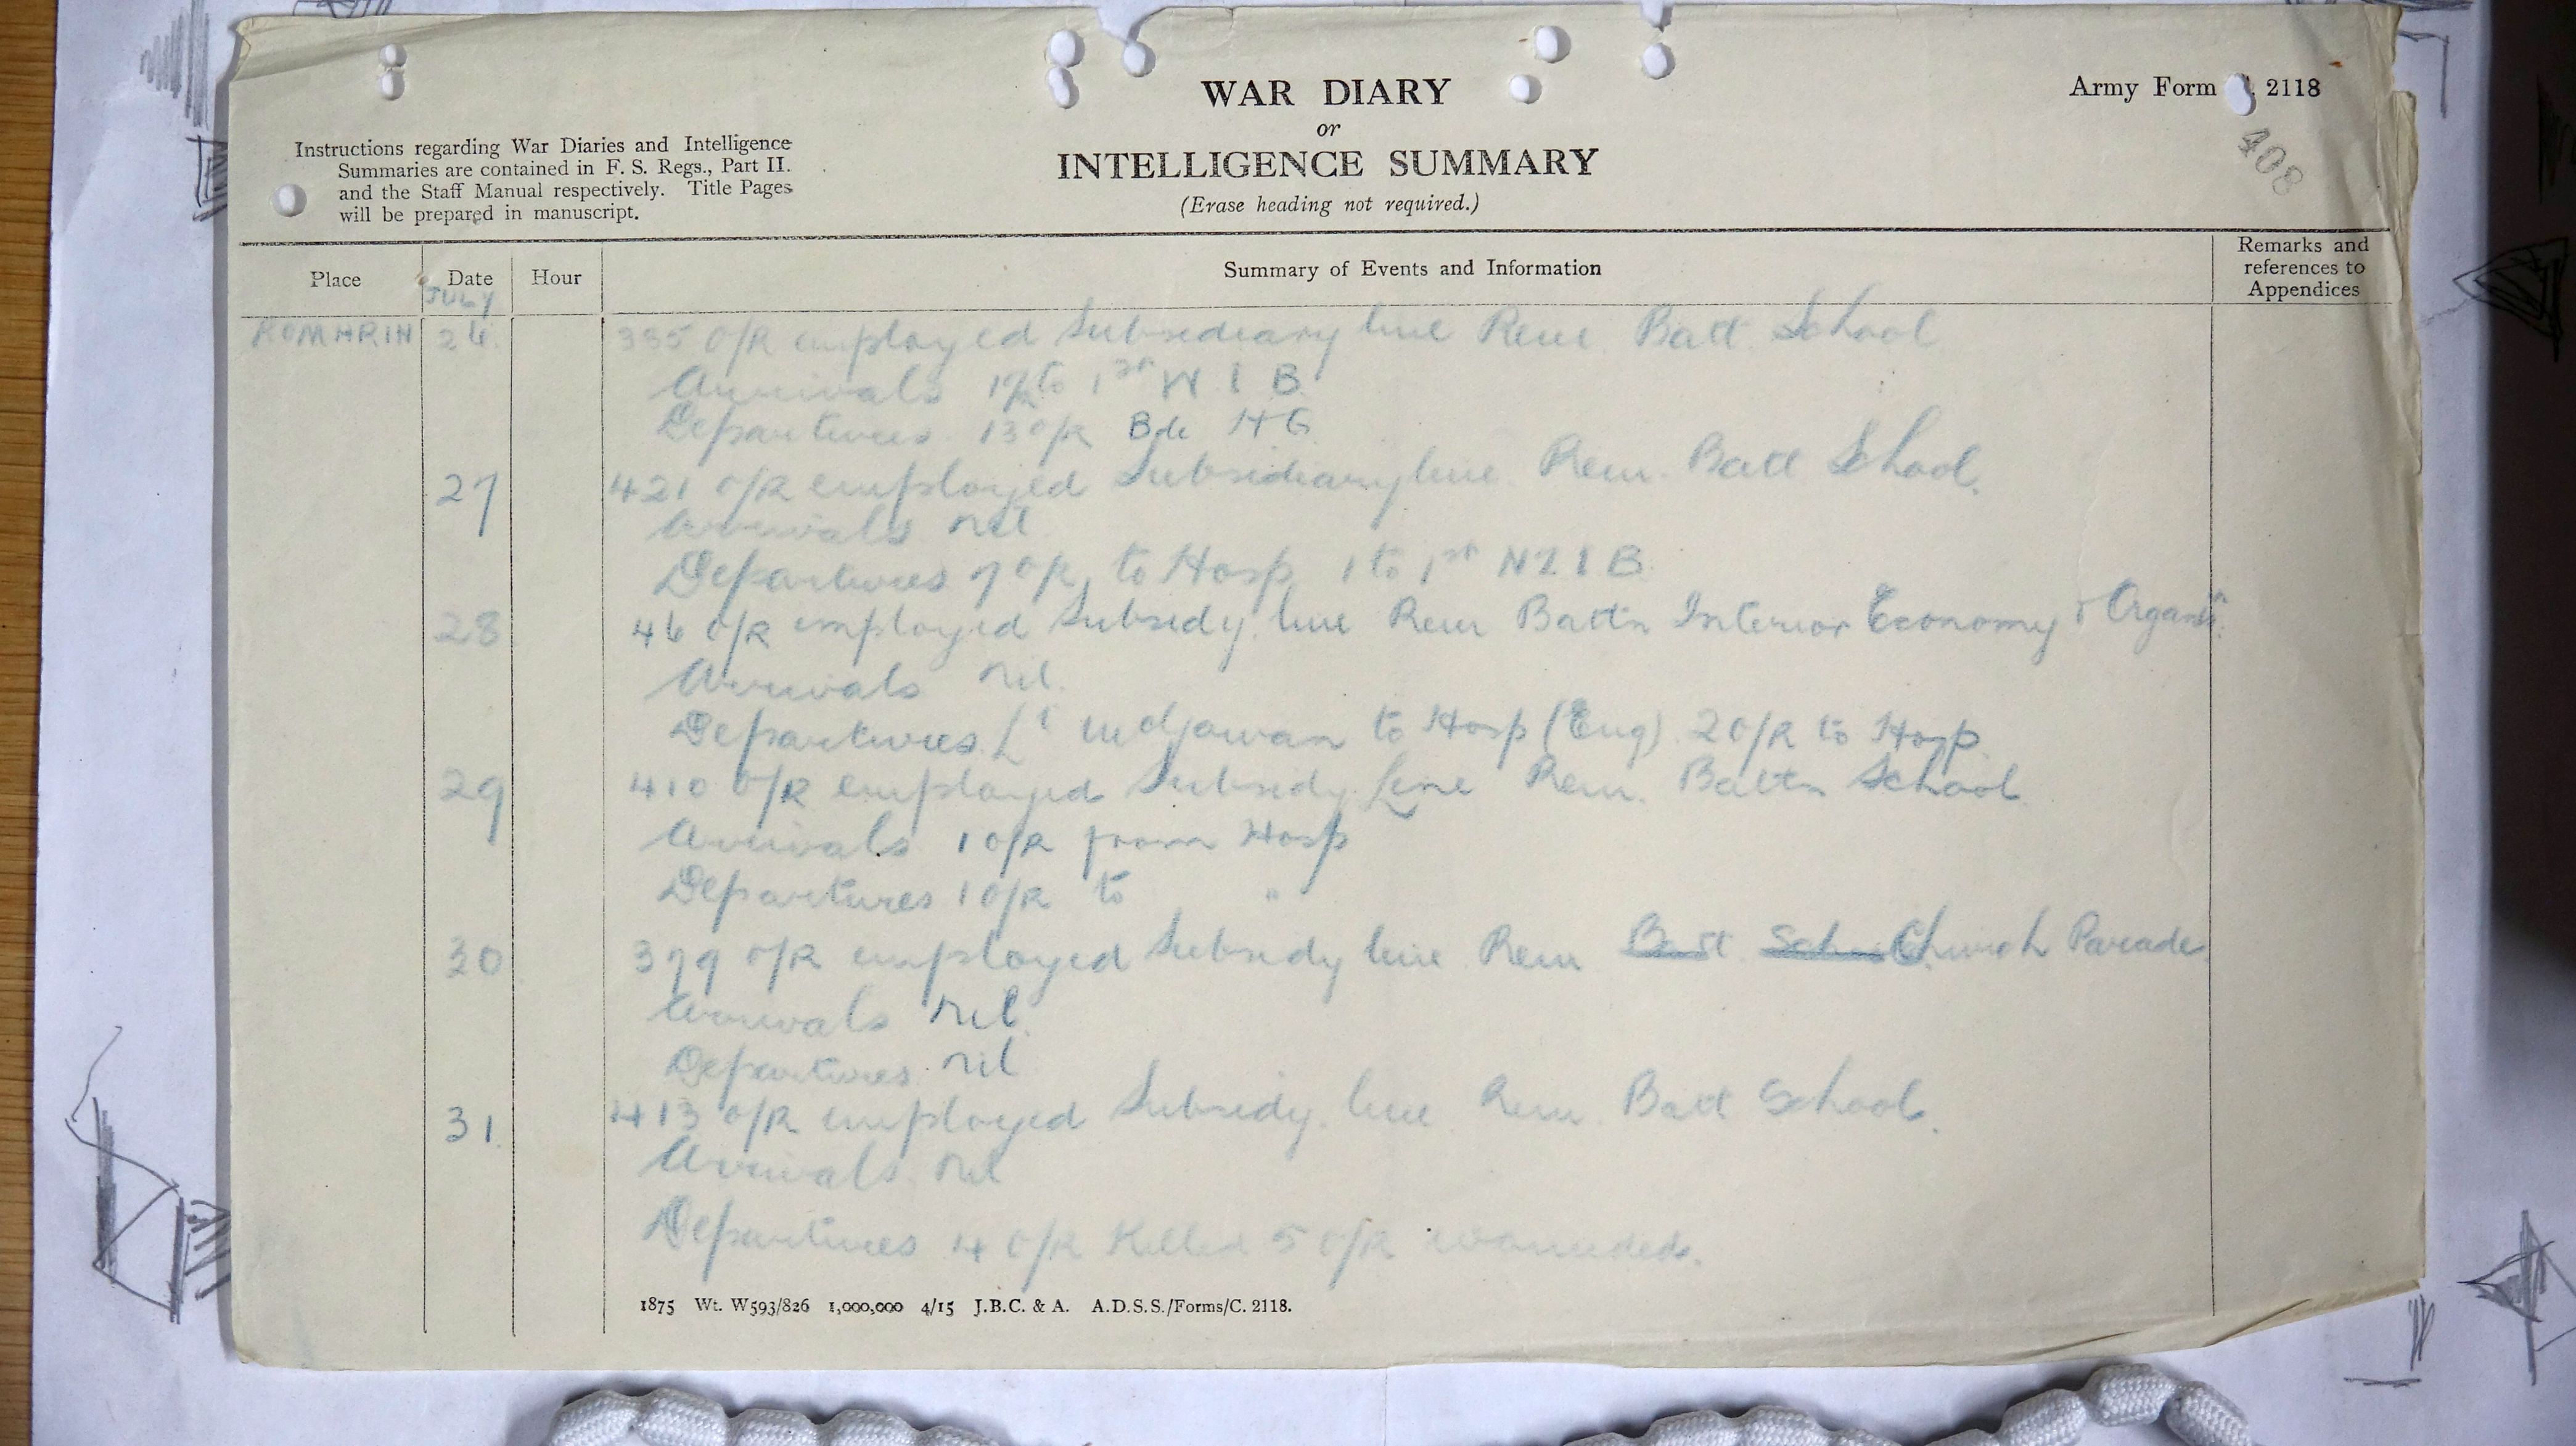 WAR DIARY
or
INTELLIGENCE SUMMARY
(Erase heading not required.)
Army Form 2118
408
Instructions regarding War Diaries and Intelligence
Summaries are contained in F. S. Regs., Part II.
and the Staff Manual respectively. Title Pages
will be prepared in manuscript.
Place Date Hour Summary of Events and Information Remarks and references to Appendices
JULY
ROMARIN 26. 335 O/R employed Subsideary line Rem Batt School
Arrivals to 1st W I B
Departures 13 O/R Bde HQ
27 421 O/R employed Subsideary line Rem. Batt School.
Arrivals nil
Departures 7 O/R to Hosp 1 to 1st NZIB
28 46 O/R employed Subsidy line Rem Battn Interior Economy & Organ
Arrivals nil.
Departures Lt to Hosp (Eng) 2 O/R to Hosp.
29 410 O/R employed Subsidy Line Rem. Battn School
Arrivals 1 O/R from Hosp
Departures 1 O/R to "
30 379 O/R employed Subsidy line Rem Batt School Church Parade
Arrivals nil.
Departures nil
31. 413 O/R employed Subsidy. line Rem. Batt School.
Arrivals nil
Departures 4 O/R Killed 5 O/R wounded.
1875 Wt. W593/826 1,000,000 4/15 J.B.C. & A. A.D.S.S./Forms/C. 2118.